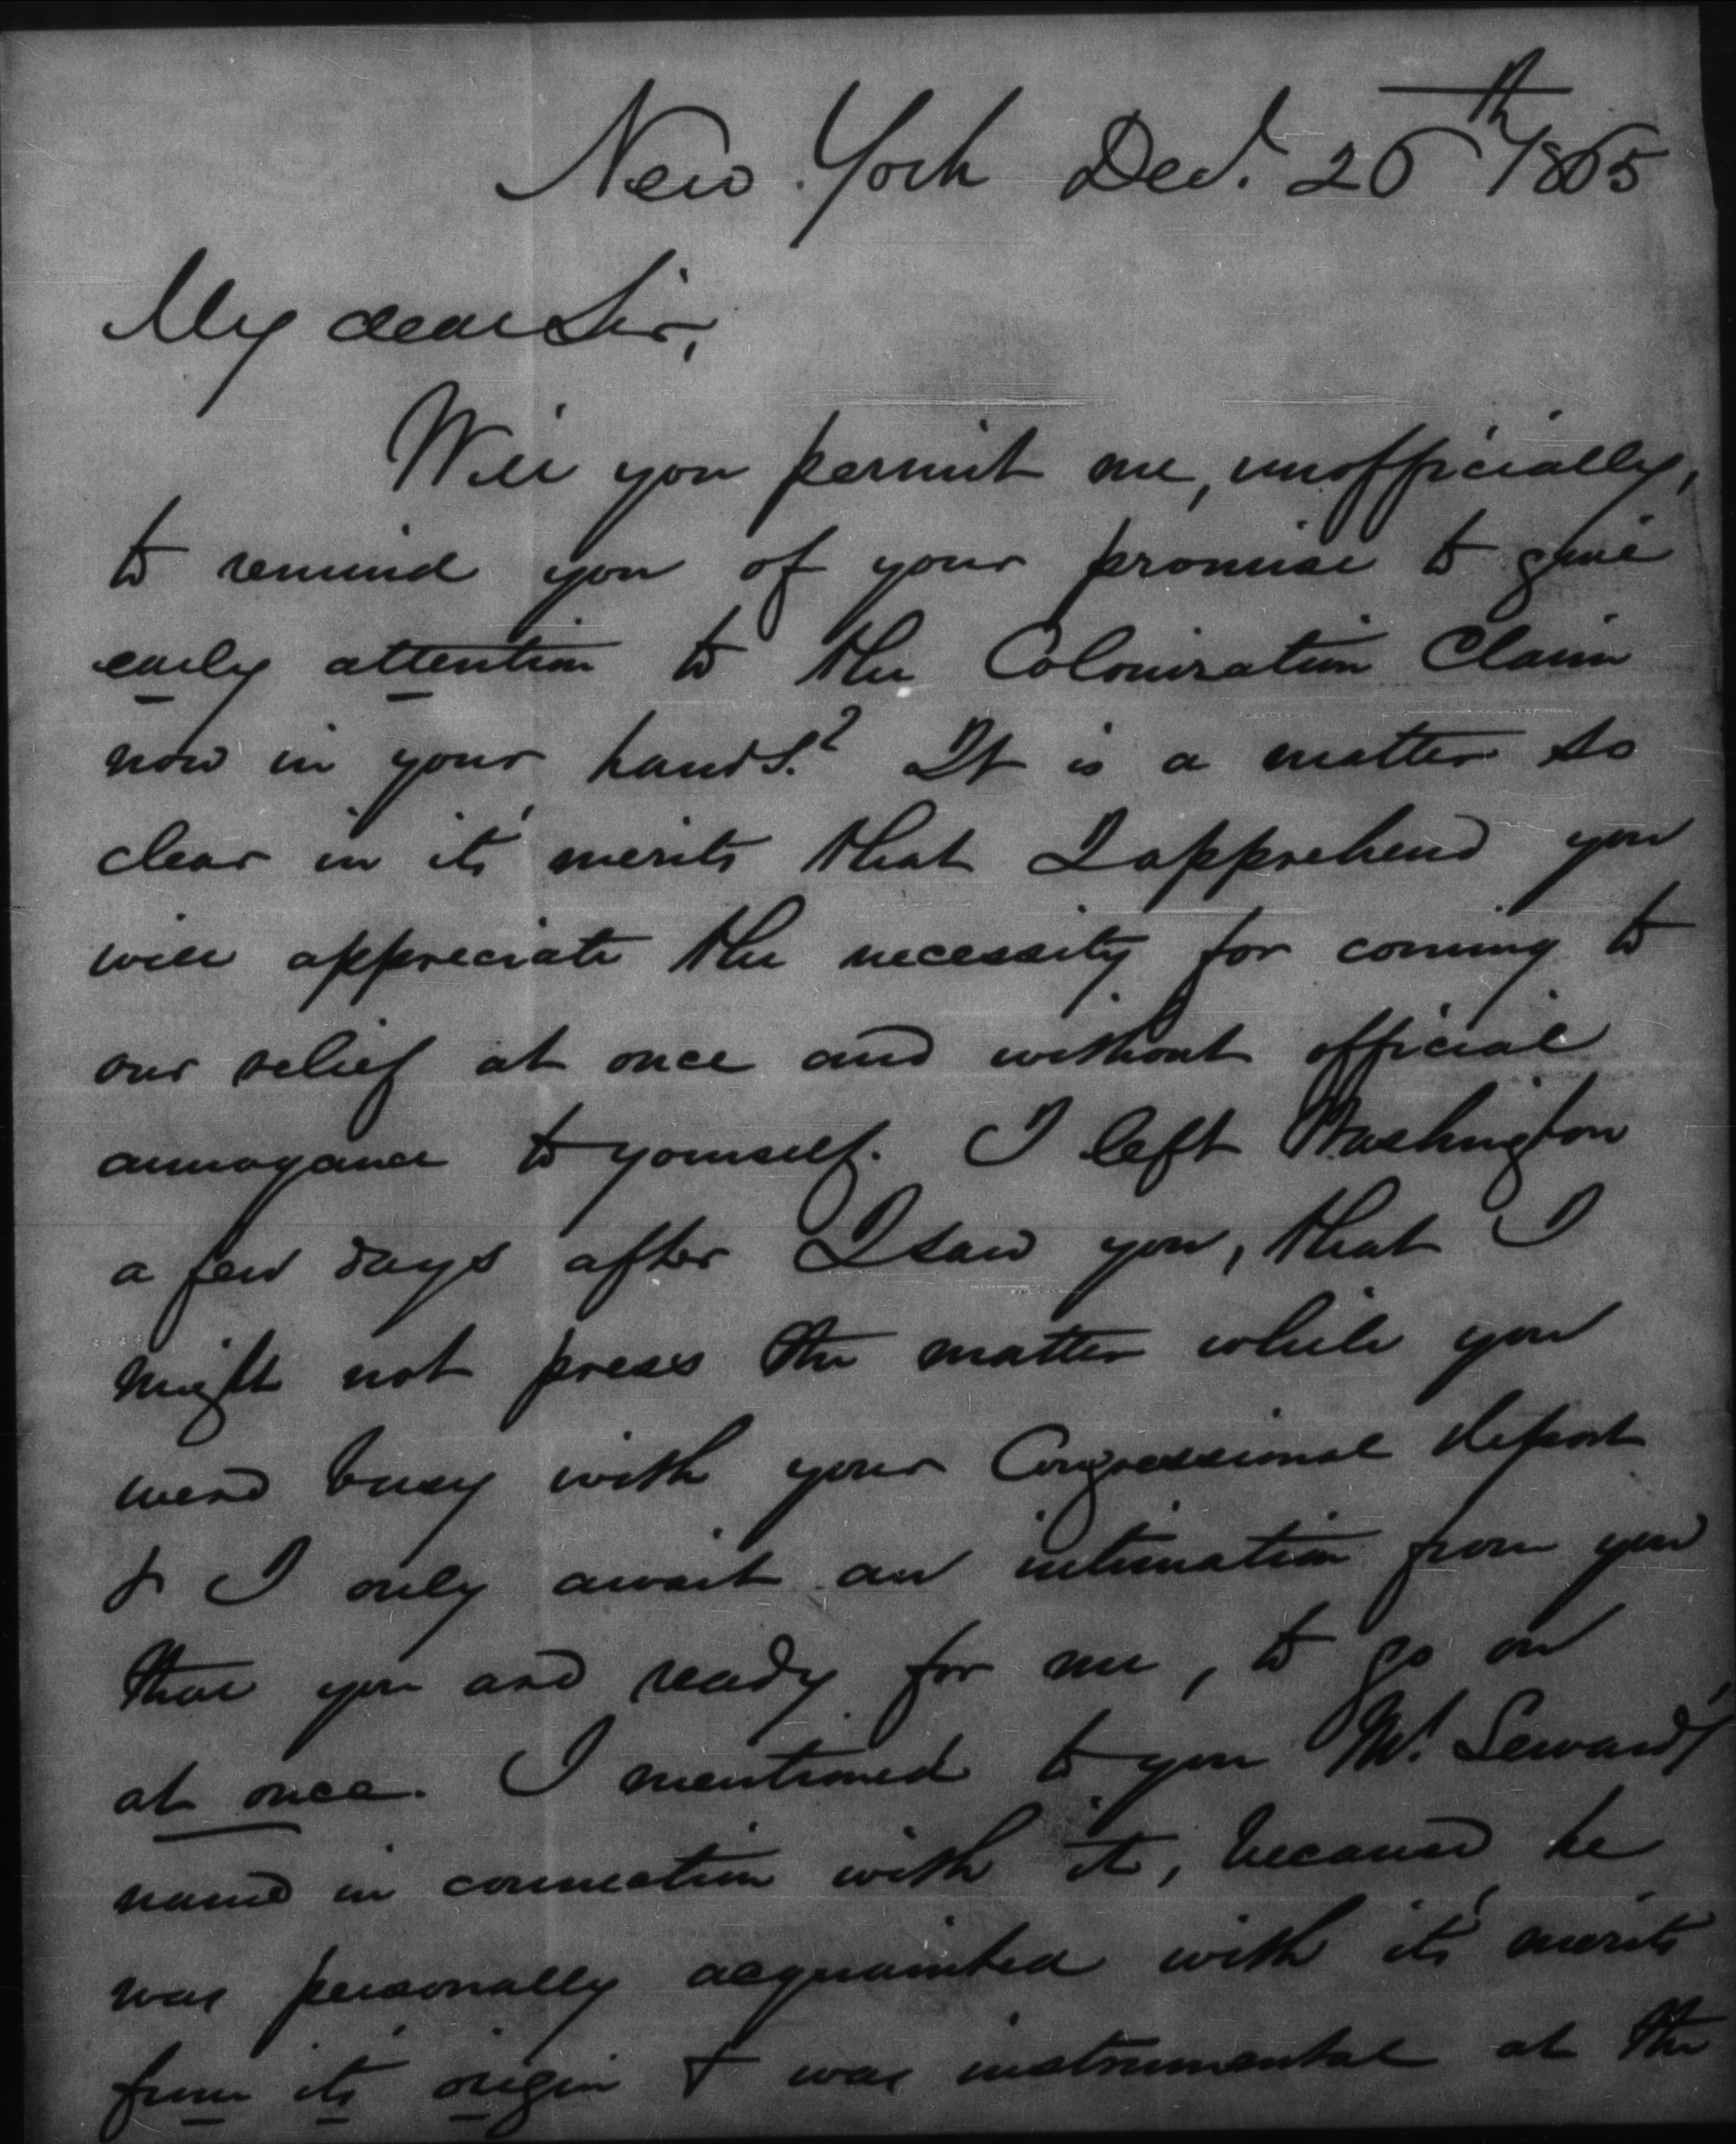 New York Dec. 26th 1865
My dear Sir,
Will you permit me, unofficially,
to remind you of your promise to give
early attention to the Colonization Claim
now in your hands? It is a matter so
clear in it's merits that I apprehend you
will appreciate the necessity for coming to
our relief at once and without official
annoyance to yourself. I left Washington
a few days after I saw you, that I
might not press the matter while you
were busy with your Congressional Report
& I only await an intimation from you
that you are ready for me, to go on
at once. I mentioned to you Mr. Seward's
name in connection with it, because he
was personally acquainted with it's merits
from its origin & was instrumental at the